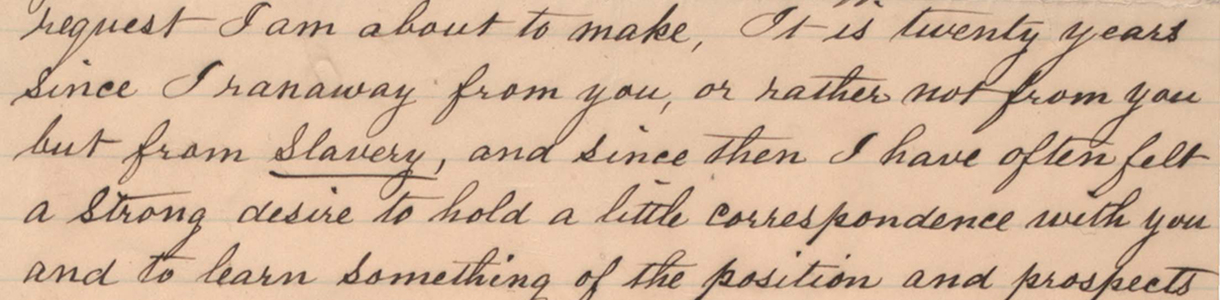 request I am about to make, It is twenty years
since I ranaway from you, or rather not from you
but from Slavery, and since then I have often felt
a strong desire to hold a little correspondence with you
and to learn something of the position and prospects